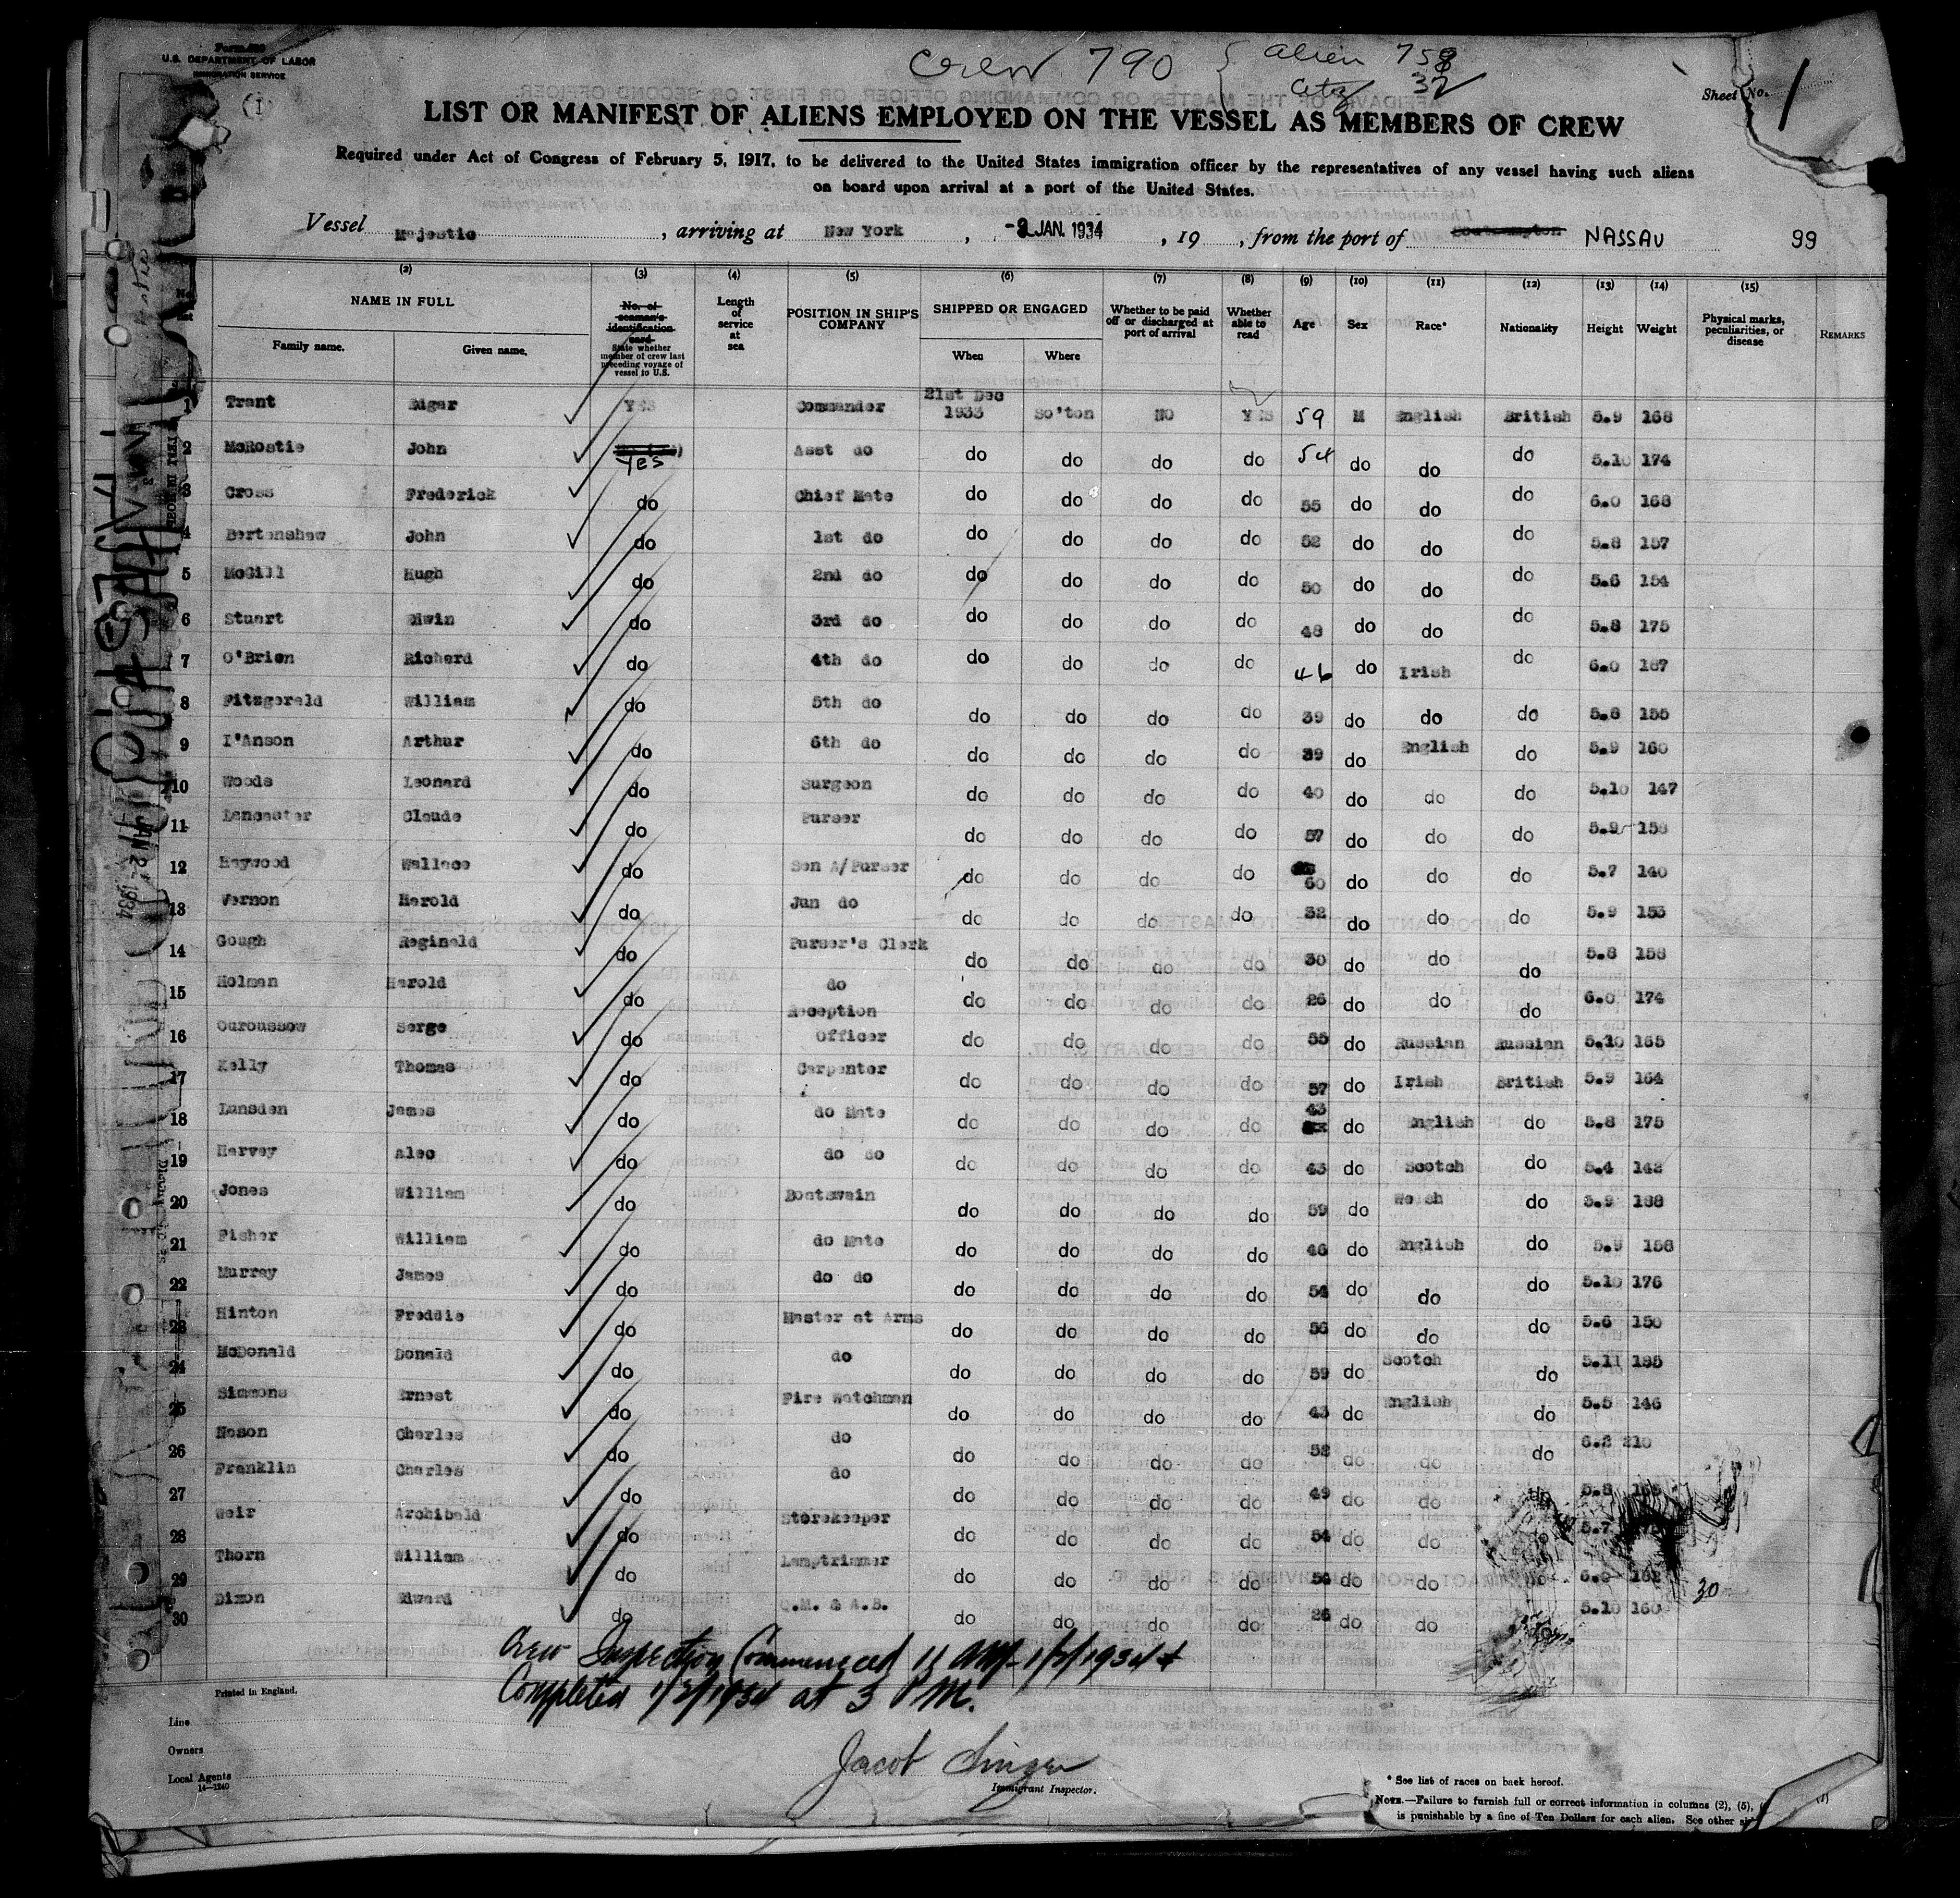 Form 680
U.S. DEPARTMENT OF LABOR
IMMIGRATION SERVICE
(1)
Crew 790 { alien 758
Citz 32
Sheet No. 1
LIST OR MANIFEST OF ALIENS EMPLOYED ON THE VESSEL AS MEMBERS OF CREW
Required under Act of Congress of February 5, 1917, to be delivered to the United States immigration officer by the representatives of any vessel having such aliens
on board upon arrival at a port of the United States.
Vessel Majestic, arriving at New York, -2 JAN. 1934, 19 , from the port of Southampton NASSAU 99
(2) (3) (4) (5) (6) (7) (8) (9) (10) (11) (12) (13) (14) (15)
NAME IN FULL Family name. Given name. No. of seaman's identification card State whether member of crew last preceding voyage of vessel to U.S. Length of service at sea POSITION IN SHIP'S COMPANY SHIPPED OR ENGAGED When Where Whether to be paid off or discharged at port of arrival Whether able to read Age Sex Race* Nationality Height Weight Physical marks, peculiarities, or disease REMARKS
1 Trant Edgar YES Commander 21st Dec 1933 So'ton NO YES 59 M English British 5.9 168
2 McRostie John Yes Asst do do do do do 54 do do do 5.10 174
3 Cross Frederick do Chief Mate do do do do 55 do do do 6.0 168
4 Bertenshaw John do 1st do do do do do 52 do do do 5.8 157
5 McGill Hugh do 2nd do do do do do 50 do do do 5.6 154
6 Stuart Edwin do 3rd do do do do do 48 do do do 5.8 175
7 O'Brien Richard do 4th do do do do do 46 do Irish do 6.0 167
8 Fitzgerald William do 5th do do do do do 39 do do do 5.8 155
9 I'Anson Arthur do 6th do do do do do 39 do English do 5.9 160
10 Woods Leonard do Surgeon do do do do 40 do do do 5.10 147
11 Lancaster Claude do Purser do do do do 57 do do do 5.9 158
12 Haywood Wallace do Sen A/Purser do do do do 60 do do do 5.7 140
13 Vernon Harold do Jun do do do do do 32 do do do 5.9 153
14 Gough Reginald do Purser's Clerk do do do do 30 do do do 5.8 158
15 Holman Harold do do do do do do 26 do do do 6.0 174
16 Ouroussow Serge do Reception Officer do do do do 55 do Russian Russian 5.10 165
17 Kelly Thomas do Carpenter do do do do 57 do Irish British 5.9 164
18 Lunsden James do do Mate do do do do 43 do English do 5.8 175
19 Harvey Alec do do do do do do do 43 do Scotch do 5.4 142
20 Jones William do Boatswain do do do do 59 do Welsh do 5.9 188
21 Fisher William do do Mate do do do do 46 do English do 5.9 158
22 Murray James do do do do do do do 54 do do do 5.10 176
23 Hinton Freddie do Master at Arms do do do do 56 do do do 5.6 150
24 McDonald Donald do do do do do do 59 do Scotch do 5.11 185
25 Simmons Ernest do Fire Watchman do do do do 43 do English do 5.5 146
26 Nason Charles do do do do do do 52 do do do 6.2 210
27 Franklin Charles do do do do do do 49 do do do 5.8
28 Weir Archibald do Storekeeper do do do do 54 do do 5.7
29 Thorn William do Lamptrimmer do do do do 54 do do do 6.0 182
30 Dixon Edward do Q.M. & A.B. do do do do 26 do do do 5.10 160
30
Crew Inspection Commenced 11 AM - 1/2/1934 +
Completed 1/2/1934 at 3 PM.
Printed in England.
Line
Owners
Local Agents
14—1240
Jacob Singer
Immigrant Inspector.
* See list of races on back hereof.
NOTE.—Failure to furnish full or correct information in columns (2), (5),
is punishable by a fine of Ten Dollars for each alien. See other
MAJESTIC
JAN 2 - 1934